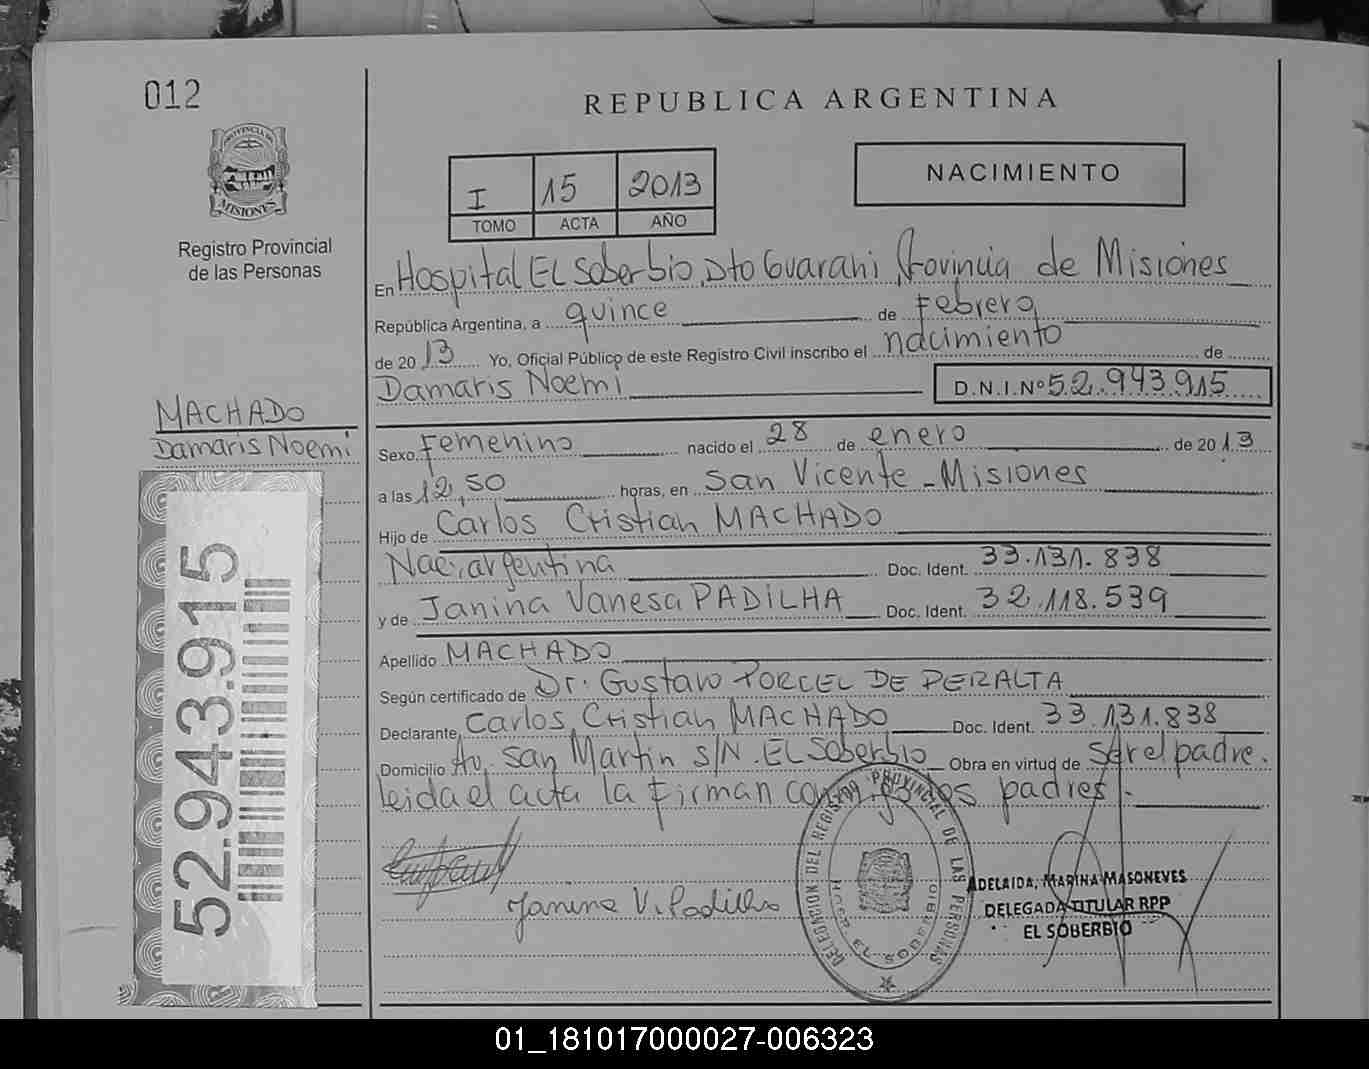 012
PROVINCIA DE
MISIONES
Registro Provincial
de las Personas
MACHADO
Damaris Noemi
52.943.915
REPUBLICA ARGENTINA
I 15 2013
TOMO ACTA AÑO
NACIMIENTO
En Hospital El Soberbio, Dto Guarani, Provincia de Misiones
República Argentina, a quince de Febrero
de 2013 Yo, Oficial Público de este Registro Civil inscribo el nacimiento de
Damaris Noemi D.N.I.Nº 52.943.915
Sexo Femenino nacido el 28 de enero de 2013
a las 12,50 horas, en San Vicente - Misiones
Hijo de Carlos Cristian MACHADO
Nac. argentina Doc. Ident. 33.131.838
y de Janina Vanesa PADILHA Doc. Ident. 32.118.539
Apellido MACHADO
Según certificado de Dr. Gustavo PORCEL DE PERALTA
Declarante Carlos Cristian MACHADO Doc. Ident. 33.131.838
Domicilio Av. San Martin s/N. El Soberbio Obra en virtud de ser el padre.
leida el acta la firman los padres.
Janina V. Padilha
DELEGACION DEL REGISTRO PROVINCIAL DE LAS PERSONAS
EL SOBERBIO
ADELAIDA, MARINA MASONEVES
DELEGADA TITULAR RPP
EL SOBERBIO
01_181017000027-006323